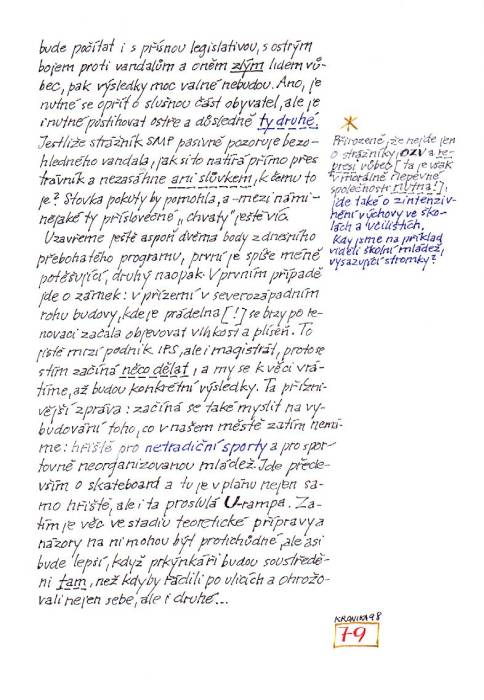 bude počítat i s přísnou legislativou, s ostrým
bojem proti vandalům a oněm zlým lidem vů-
bec, pak výsledky moc valné nebudou. Ano, je
nutné se opřít o slušnou část obyvatel, ale je
i nutné postihovat ostře a důsledně ty druhé.
Jestliže strážník SMP pasivně pozoruje bezo-
hledného vandala, jak si to natírá přímo přes
trávník a nezasáhne ani slůvkem, k čemu to
je? Stovka pokuty by pomohla, a - mezi námi -
nějaké ty příslovečné „chvaty" ještě víc.
Uzavřeme ještě aspoň dvěma body z dnešního
přebohatého programu, první je spíše méně
potěšující, druhý naopak. V prvním případě
jde o zámek: v přízemí v severozápadním
rohu budovy, kde je prádelna [!] se brzy po re-
novaci začala objevovat vlhkost a plíseň. To
jistě mrzí podnik IPS, ale i magistrát, proto se
s tím začíná něco dělat, a my se k věci vrá-
tíme, až budou konkrétní výsledky. Ta přízni-
vější zpráva: začíná se také myslit na vy-
budování toho, co v našem městě zatím nemí-
me: hřiště pro netradiční sporty a pro spor-
tovně neorganizovanou mládež. Jde přede-
vším o skateboard a tu je v plánu nejen sa-
mo hřiště, ale i ta proslulá U-rampa. Za-
tím je věc ve stadiu teoretické přípravy a
názory na ni mohou být protichůdné, ale asi
bude lepší, když prkýnkáři budou soustředě-
ni tam, než kdyby řádili po ulicích a ohrožo-
vali nejen sebe, ale i druhé...
Přirozeně, že nejde jen
o strážníky, OZV a re-
presi vůbec [ta je však
v morálně nepevné
společnosti nutná!],
jde také o zintenziv-
nění výchovy ve ško-
lách a učilištích.
Kdy jsme na příklad
viděli školní mládež,
vysazující stromky?
KRONIKA 98
79